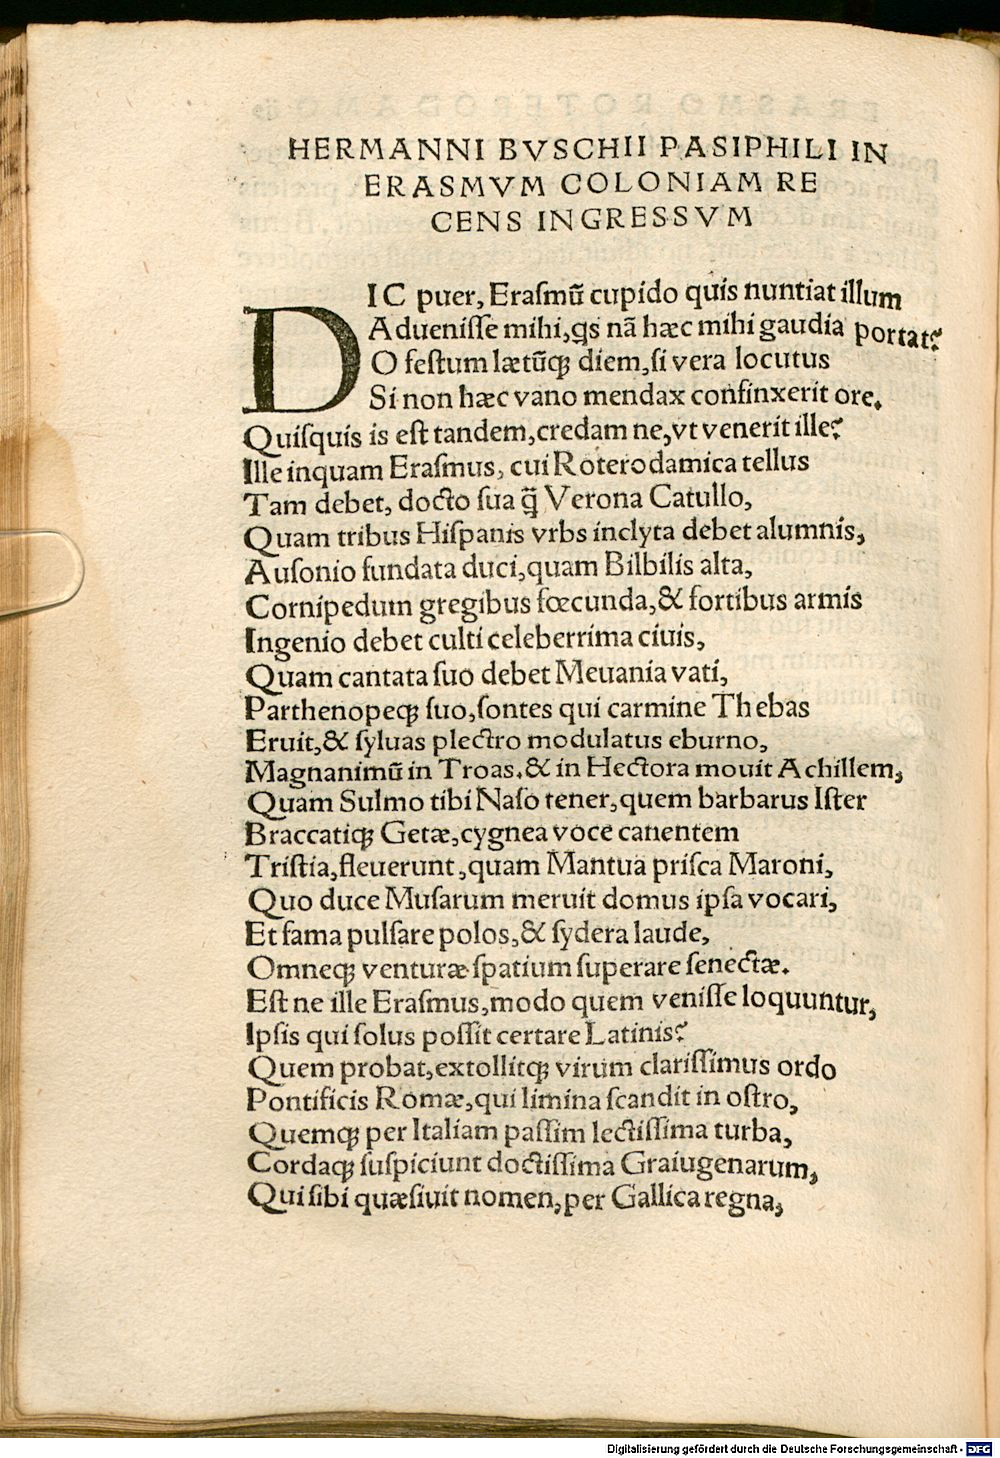 HERMANNI BVSCHII PASIPHILI IN
ERASMVM COLONIAM RE
CENS INGRESSVM
DIC puer, Erasmū cupido quis nuntiat illum
Aduenisse mihi, qs nā hæc mihi gaudia portat?
O festum lætūqꝫ diem, si vera locutus
Si non hæc vano mendax confinxerit ore.
Quisquis is est tandem, credam ne, vt venerit ille?
Ille inquam Erasmus, cui Roterodamica tellus
Tam debet, docto sua q̄ Verona Catullo,
Quam tribus Hispanis vrbs inclyta debet alumnis,
Ausonio fundata duci, quam Bilbilis alta,
Cornipedum gregibus fœcunda, & fortibus armis
Ingenio debet culti celeberrima ciuis,
Quam cantata suo debet Meuania vati,
Parthenopeqꝫ suo, sontes qui carmine Thebas
Eruit, & syluas plectro modulatus eburno,
Magnanimū in Troas. & in Hectora mouit Achillem,
Quam Sulmo tibi Naso tener, quem barbarus Ister
Braccatiqꝫ Getæ, cygnea voce canentem
Tristia, fleuerunt, quam Mantua prisca Maroni,
Quo duce Musarum meruit domus ipsa vocari,
Et fama pulsare polos, & sydera laude,
Omneqꝫ venturæ spatium superare senectæ.
Est ne ille Erasmus, modo quem venisse loquuntur,
Ipsis qui solus possit certare Latinis?
Quem probat, extollitqꝫ virum clarissimus ordo
Pontificis Romæ, qui limina scandit in ostro,
Quemqꝫ per Italiam passim lectissima turba,
Cordaqꝫ suspiciunt doctissima Graiugenarum,
Qui sibi quæsiuit nomen, per Gallica regna,
Digitalisierung gefördert durch die Deutsche Forschungsgemeinschaft - DFG